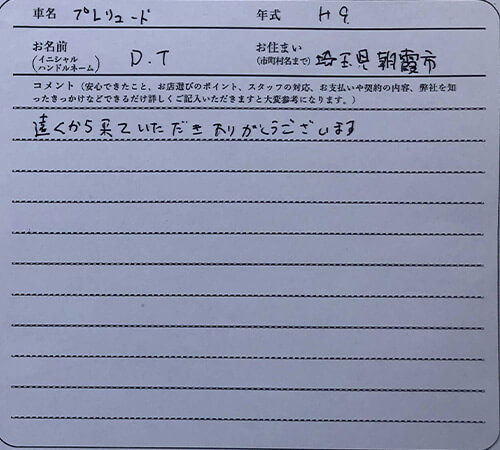 車名 プレリュード 年式 H9.
お名前 (イニシャル ハンドルネーム) D.T お住まい (市町村名まで) 埼玉県朝霞市
コメント（安心できたこと、お店選びのポイント、スタッフの対応、お支払いや契約の内容、弊社を知
ったきっかけなどできるだけ詳しくご記入いただきますと大変参考になります。）
遠くから来ていただきありがとうございます